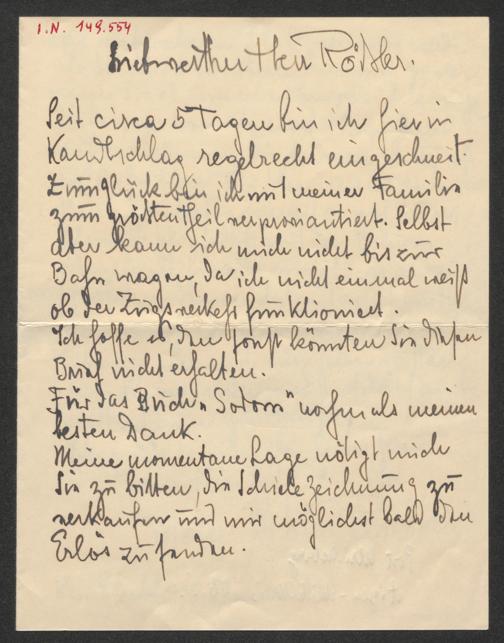 I.N. 149.554
Liebwerther Herr Rössler.
Seit circa 5 Tagen bin ich hier in
Kandlschlag regelrecht eingeschneit.
Zum Glück bin ich mit meiner Familie
zum größtentheil verproviantiert. Selbst
aber kann ich mich nicht bis zur
Bahn wagen, da ich nicht einmal weiß
ob der Zugsverkehr funktioniert.
Ich hoffe es, denn sonst könnten Sie diesen
Brief nicht erhalten.
Für das Buch „Sodom" nochmals meinen
besten Dank.
Meine momentane Lage nötigt mich
Sie zu bitten, die Schiele zeichnung zu
verkaufen und mir möglichst bald den
Erlös zu senden.